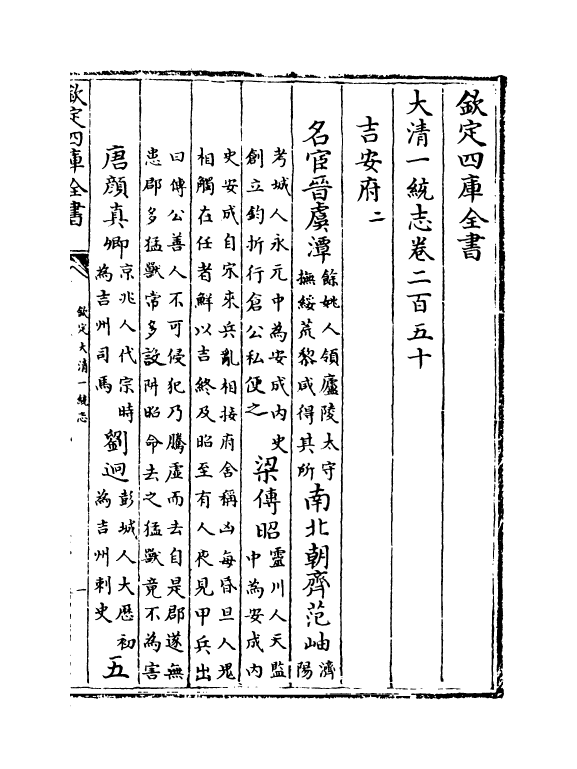 欽定四庫全書
大清一統志卷二百五十
吉安府二
名宦晉虞潭餘姚人領廬陵太守撫綏荒黎咸得其所南北朝齊范岫濟陽
考城人永元中為安成內史創立鈞折行倉公私便之梁傅昭靈川人天監中為安成內
史安成自宋來兵亂相接府舍稱凶每昏旦人鬼相觸在任者鮮以吉終及昭至有人夜見甲兵出
曰傅公善人不可侵犯乃騰虛而去自是郡遂無患郡多猛獸常多設阱昭命去之猛獸竟不為害
唐顏真卿京兆人代宗時為吉州司馬劉迥彭城人大厯初為吉州刺史五
欽定四庫全書
欽定大清一統志
一